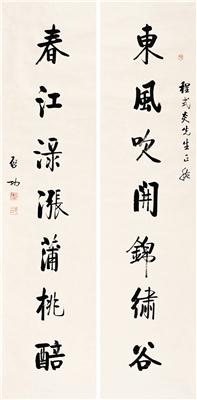 東風吹開錦繡谷
程武炎先生正發
春江渌漲蒲桃醅
啟功